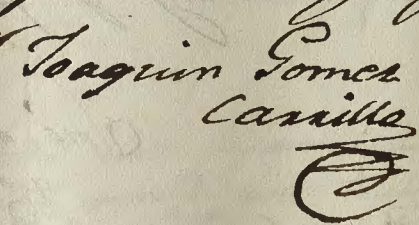 Joaquin Gomez
Carrillo